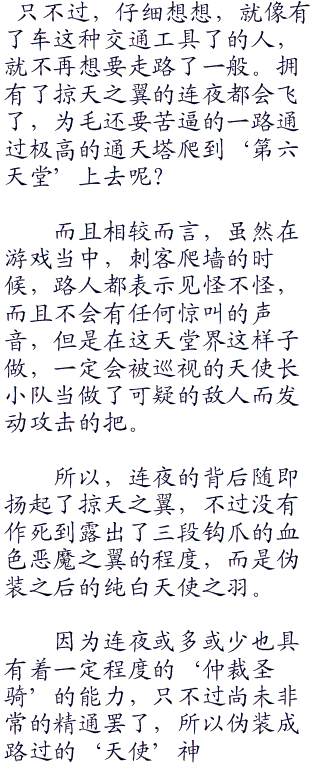 只不过，仔细想想，就像有
了车这种交通工具了的人，
就不再想要走路了一般。拥
有了掠天之翼的连夜都会飞
了，为毛还要苦逼的一路通
过极高的通天塔爬到‘第六
天堂’上去呢？
而且相较而言，虽然在
游戏当中，刺客爬墙的时
候，路人都表示见怪不怪，
而且不会有任何惊叫的声
音，但是在这天堂界这样子
做，一定会被巡视的天使长
小队当做了可疑的敌人而发
动攻击的把。
所以，连夜的背后随即
扬起了掠天之翼，不过没有
作死到露出了三段钩爪的血
色恶魔之翼的程度，而是伪
装之后的纯白天使之羽。
因为连夜或多或少也具
有着一定程度的‘仲裁圣
骑’的能力，只不过尚未非
常的精通罢了，所以伪装成
路过的‘天使’神